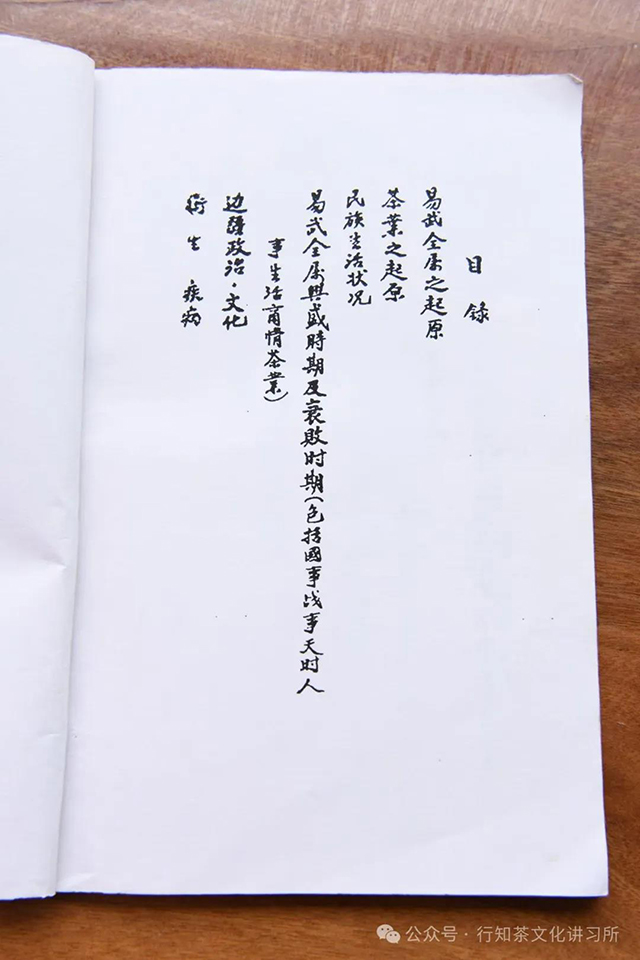 目錄
易武全属之起原
茶葉之起原
民族生活状况
易武全属興盛時期及衰敗时期(包括國事战事天时人
事生活商情茶業)
边疆政治·文化
衛生 疾病
公众号·行知茶文化讲习所